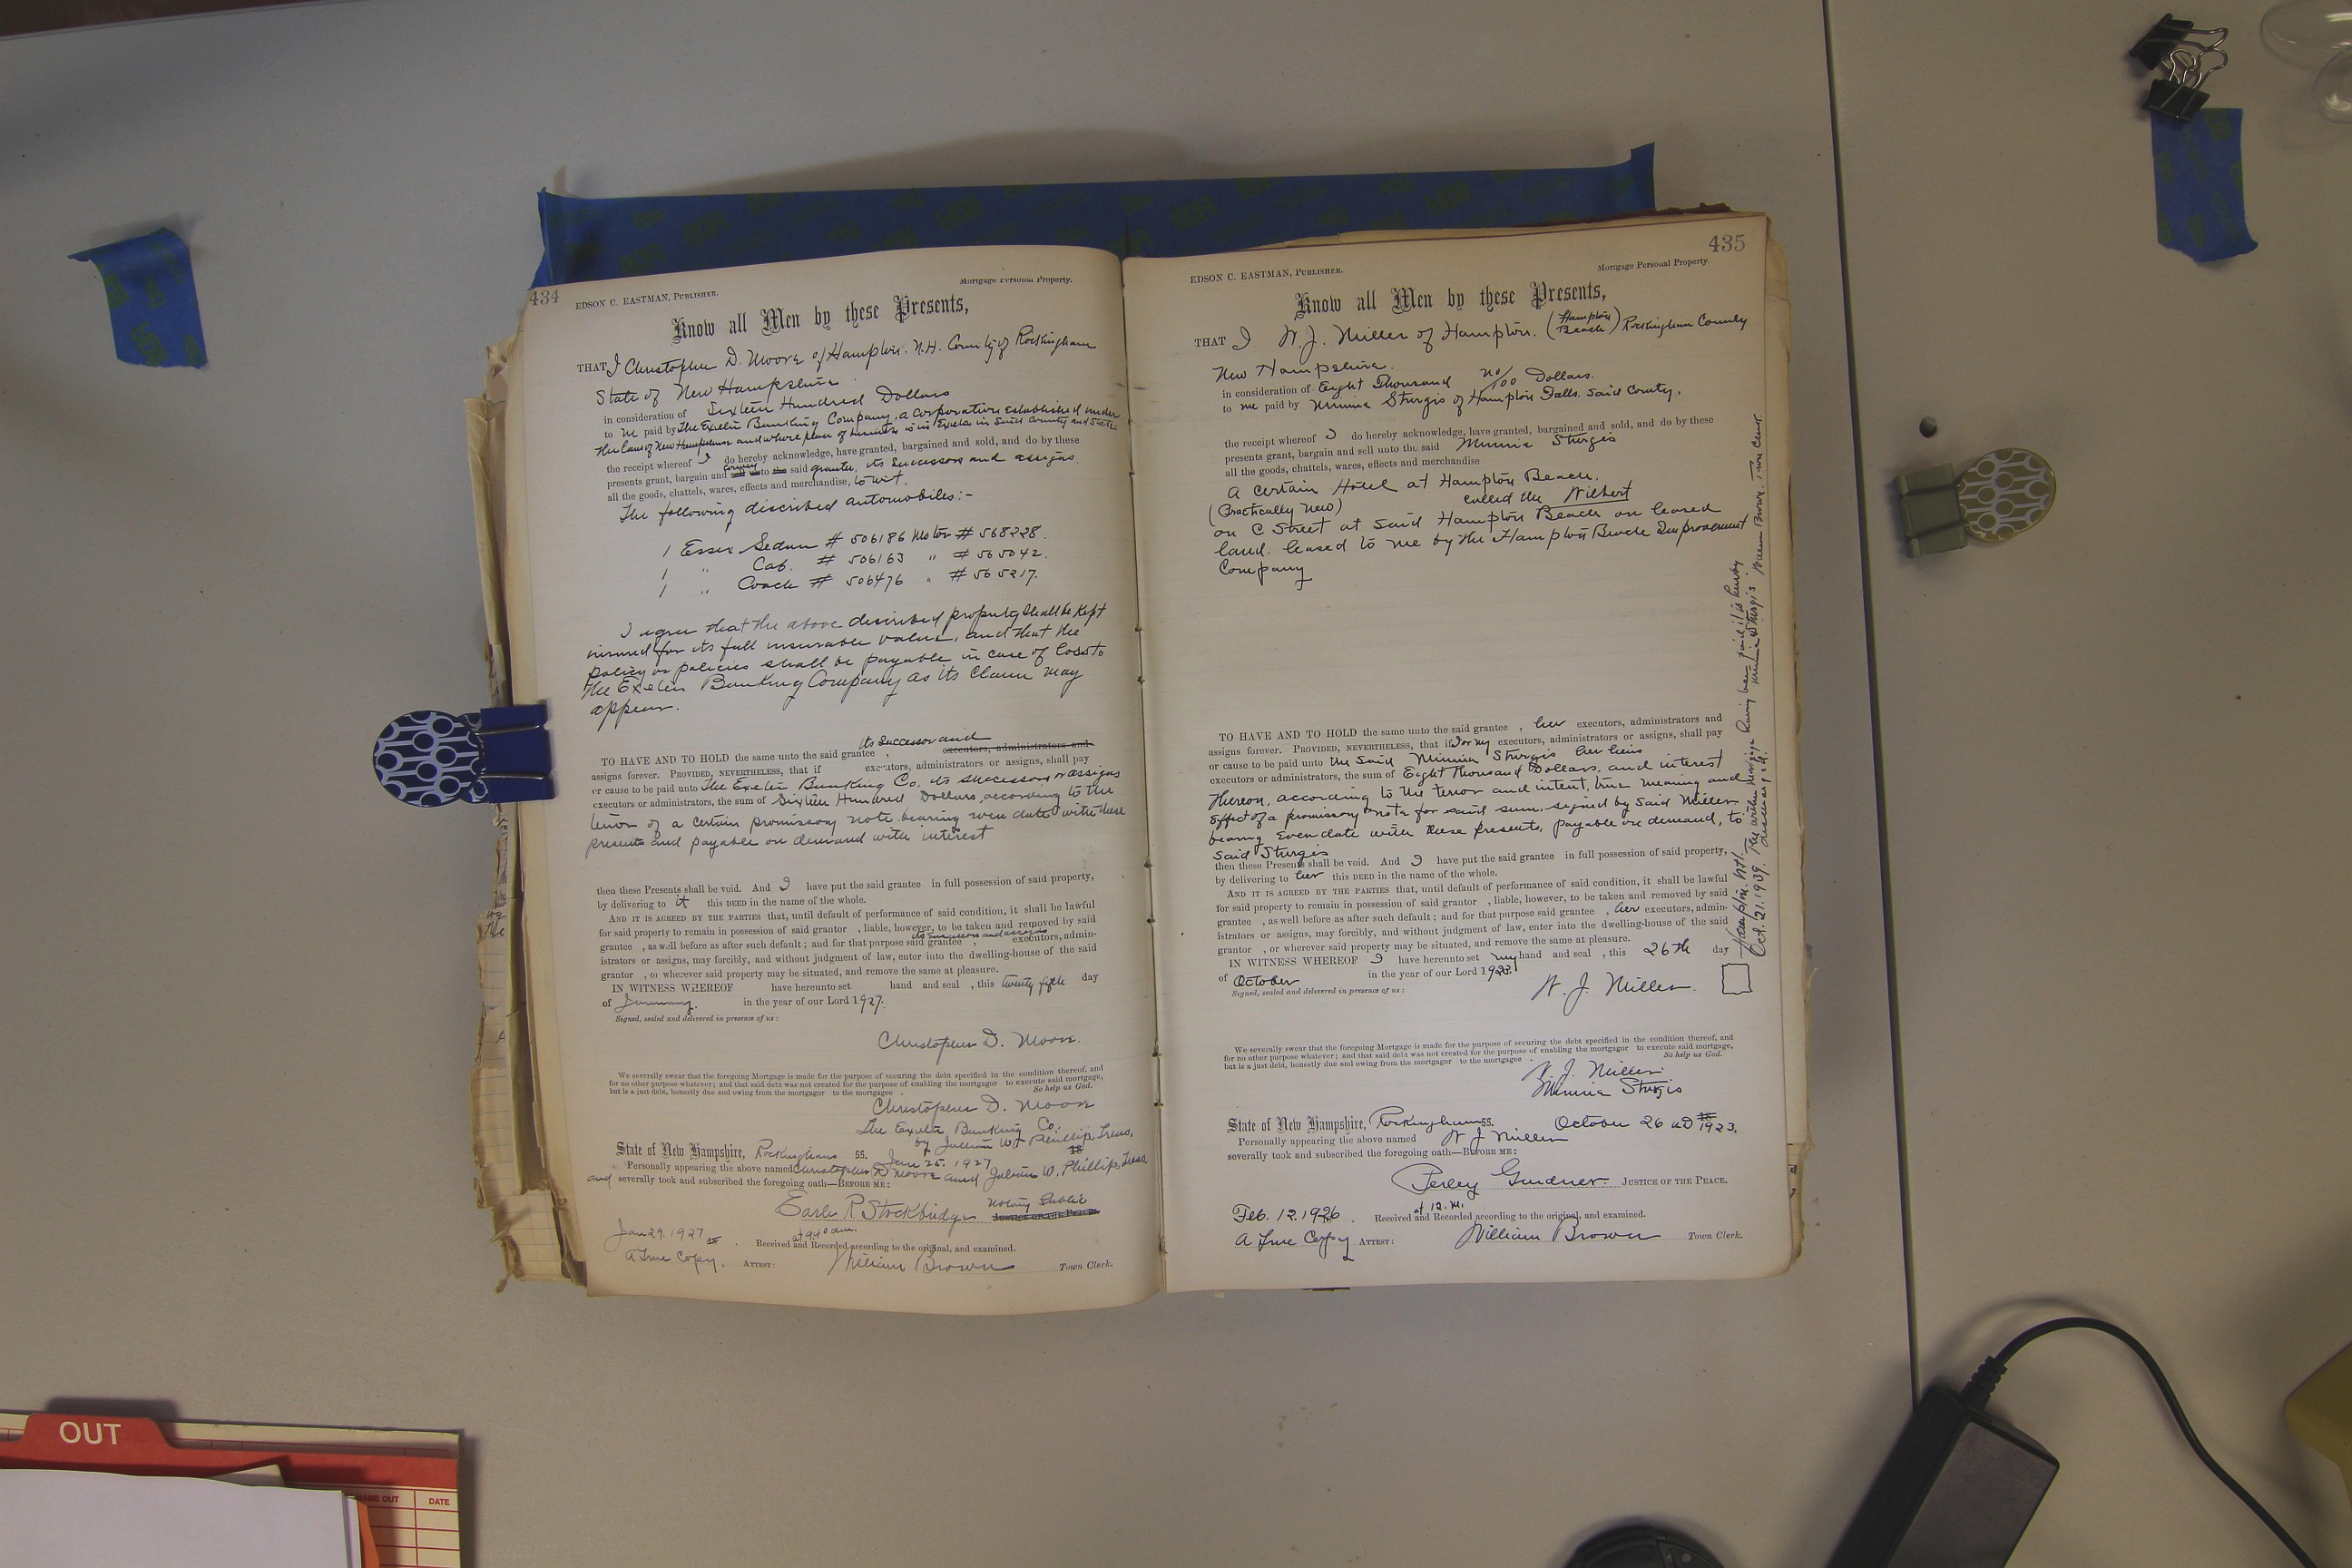 434
EDSON C. EASTMAN, PUBLISHER.
Mortgage Personal Property.
Know all Men by these Presents,
THAT I Christopher D. Moore of Hampton. N.H. County of Rockingham
State of New Hampshire
in consideration of Sixteen Hundred Dollars
to me paid by The Exeter Banking Company, a corporation established under
the laws of New Hampshire and whose place of business is in Exeter in Said County and State
the receipt whereof I do hereby acknowledge, have granted, bargained and sold, and do by these
presents grant, bargain and convey unto the said grantee, its Successors and assigns
all the goods, chattels, wares, effects and merchandise, to wit.
The following discribed automobiles:-
1 Essex Sedan # 506186 Motor # 568228.
1 " Cab. # 506163 " # 565042.
1 " Coach # 506476 " # 565217.
I agree that the above discribed property shall be kept
insured for its full insurable value, and that the
policy or policies shall be payable in case of loss to
the Exeter Banking Company as its claim may
appear.
its Successor and
TO HAVE AND TO HOLD the same unto the said grantee , executors, administrators and
assigns forever. PROVIDED, NEVERTHELESS, that if executors, administrators or assigns, shall pay
or cause to be paid unto The Exeter Banking Co. its successors or assigns
executors or administrators, the sum of Sixteen Hundred Dollars, according to the
tenor of a certain promissory note bearing even date with these
presents and payable on demand with interest
then these Presents shall be void. And I have put the said grantee in full possession of said property,
by delivering to it this DEED in the name of the whole.
AND IT IS AGREED BY THE PARTIES that, until default of performance of said condition, it shall be lawful
for said property to remain in possession of said grantor , liable, however, to be taken and removed by said
its successors and assigns
grantee , as well before as after such default ; and for that purpose said grantee , executors, admin-
istrators or assigns, may forcibly, and without judgment of law, enter into the dwelling-house of the said
grantor , or wherever said property may be situated, and remove the same at pleasure.
IN WITNESS WHEREOF have hereunto set hand and seal , this twenty fifth day
of January. in the year of our Lord 1927.
Signed, sealed and delivered in presence of us :
Christopher D. Moore.
We severally swear that the foregoing Mortgage is made for the purpose of securing the debt specified in the condition thereof, and
for no other purpose whatever; and that said debt was not created for the purpose of enabling the mortgagor to execute said mortgage,
but is a just debt, honestly due and owing from the mortgagor to the mortgagee . So help us God.
Christopher D. Moore
The Exeter Banking Co.
by Julian W. Phillip, Treas.
State of New Hampshire, Rockingham SS. Jan 25. 1927 18
Personally appearing the above named Christopher D. Moore and Julian W. Phillip, Treas
and severally took and subscribed the foregoing oath—BEFORE ME:
Earle R. Stockbridge Notary Public
JUSTICE OF THE PEACE.
Jan 29. 1927
Received and Recorded according to the original, and examined.
A True Copy. ATTEST: William Brown Town Clerk.
435
EDSON C. EASTMAN, PUBLISHER.
Mortgage Personal Property.
Know all Men by these Presents,
THAT I W. J. Miller of Hampton. (Hampton Beach) Rockingham County
New Hampshire.
in consideration of Eight Thousand no/00 Dollars.
to me paid by Minnie Sturgis of Hampton Falls. Said County,
the receipt whereof I do hereby acknowledge, have granted, bargained and sold, and do by these
presents grant, bargain and sell unto the said Minnie Sturgis
all the goods, chattels, wares, effects and merchandise
A certain Hotel at Hampton Beach.
(Practically New) called the Wilbert
on C Street at said Hampton Beach on leased
land. leased to me by the Hampton Beach Improvement
Company
TO HAVE AND TO HOLD the same unto the said grantee , her executors, administrators and
assigns forever. PROVIDED, NEVERTHELESS, that if I or my executors, administrators or assigns, shall pay
or cause to be paid unto the said Minnie Sturgis her heirs
executors or administrators, the sum of Eight Thousand Dollars, and interest
thereon, according to the terror and intent, true meaning and
effect of a promissory note for said sum, signed by said Miller
bearing even date with these presents, payable on demand, to
Said Sturgis
then these Presents shall be void. And I have put the said grantee in full possession of said property,
by delivering to her this DEED in the name of the whole.
AND IT IS AGREED BY THE PARTIES that, until default of performance of said condition, it shall be lawful
for said property to remain in possession of said grantor , liable, however, to be taken and removed by said
grantee , as well before as after such default ; and for that purpose said grantee , her executors, admin-
istrators or assigns, may forcibly, and without judgment of law, enter into the dwelling-house of the said
grantor , or wherever said property may be situated, and remove the same at pleasure.
IN WITNESS WHEREOF I have hereunto set my hand and seal , this 26th day
of October in the year of our Lord 1923.
Signed, sealed and delivered in presence of us :
W. J. Miller.
We severally swear that the foregoing Mortgage is made for the purpose of securing the debt specified in the condition thereof, and
for no other purpose whatever; and that said debt was not created for the purpose of enabling the mortgagor to execute said mortgage,
but is a just debt, honestly due and owing from the mortgagor to the mortgagee . So help us God.
W. J. Miller
Minnie Sturgis
State of New Hampshire, Rockingham SS. October 26 AD 18 1923.
Personally appearing the above named W J Miller
severally took and subscribed the foregoing oath—BEFORE ME:
Perley Gardner JUSTICE OF THE PEACE.
at 12. M.
Feb. 12. 1926 . Received and Recorded according to the original, and examined.
A True Copy ATTEST: William Brown Town Clerk.
Hampton. N.H.
Oct. 21. 1939. The within mortgage having been paid it is hereby
discharged. Minnie Sturgis William Brown. Town Clerk.
OUT
NAME OUT
DATE